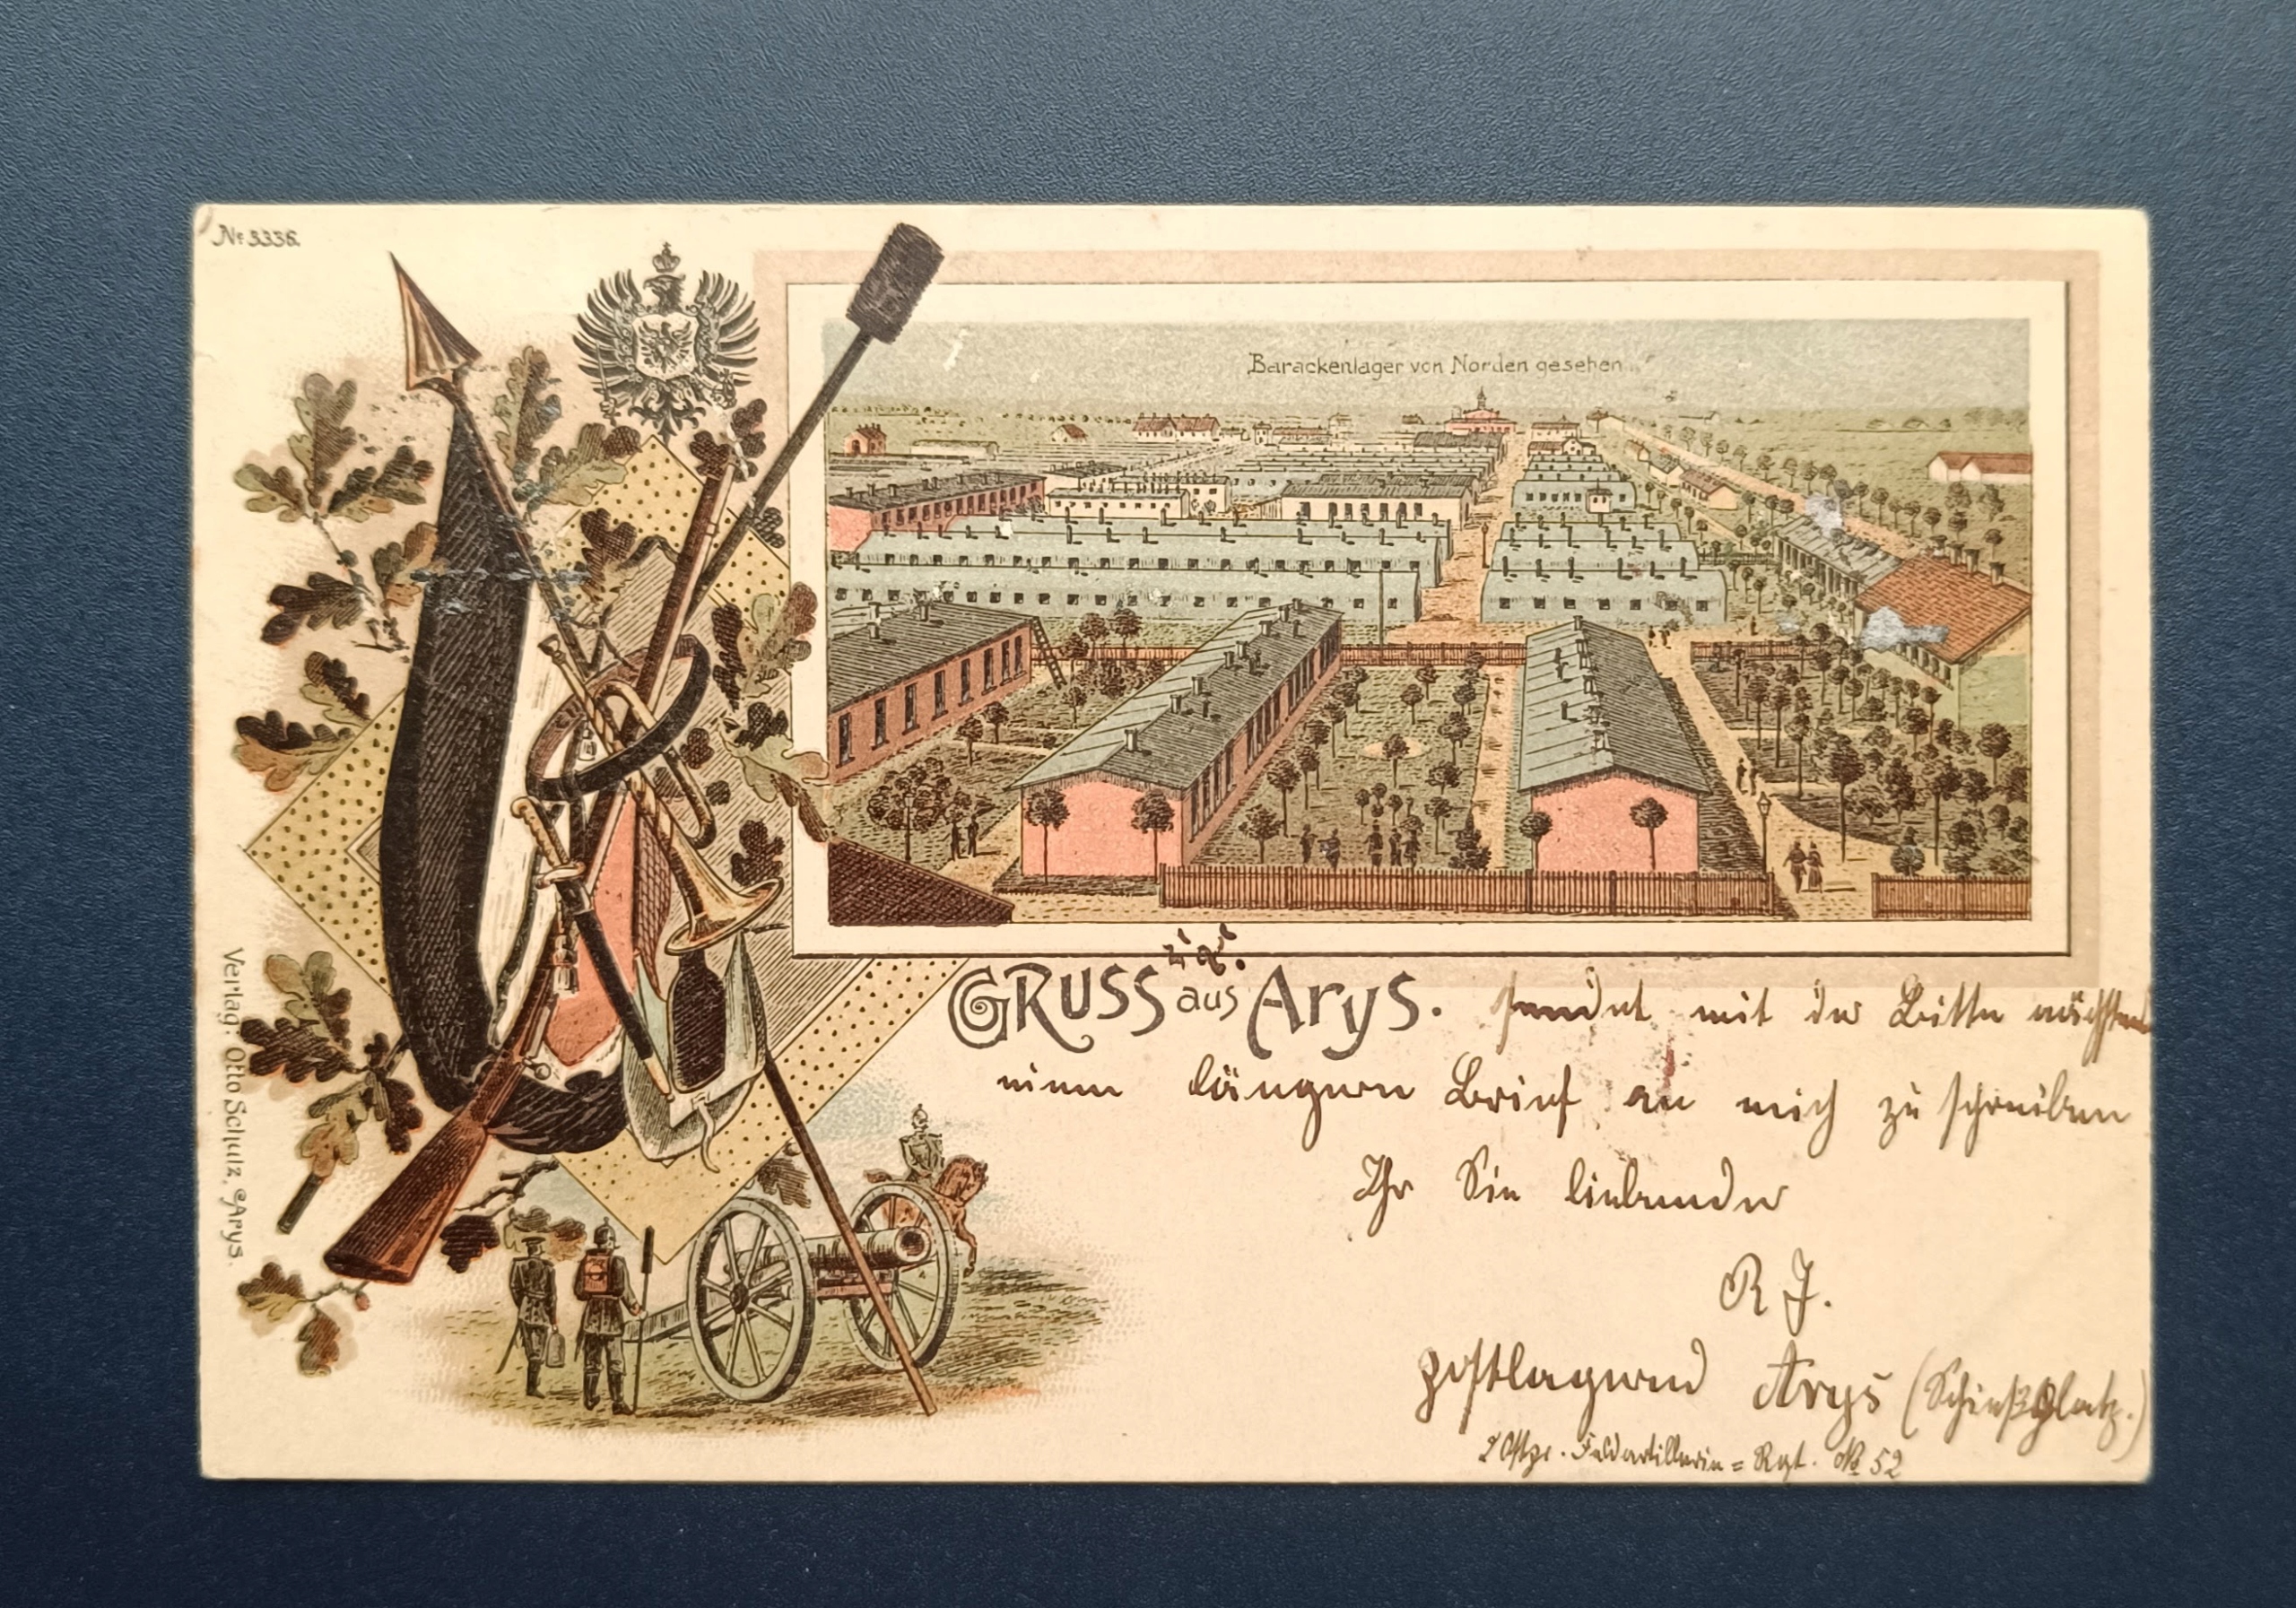 No 3336.
„Barackenlager von Norden gesehen.“
GRUSS aus Arys.
sendet mit der Bitte nächstens
einen längeren Brief an mich zu schreiben
Ihr Sie liebender
R J.
postlagernd Arys (Schießplatz.)
2 Ostpr. Feldartillerie = Rgt. No 52
Verlag: Otto Schulz, Arys.